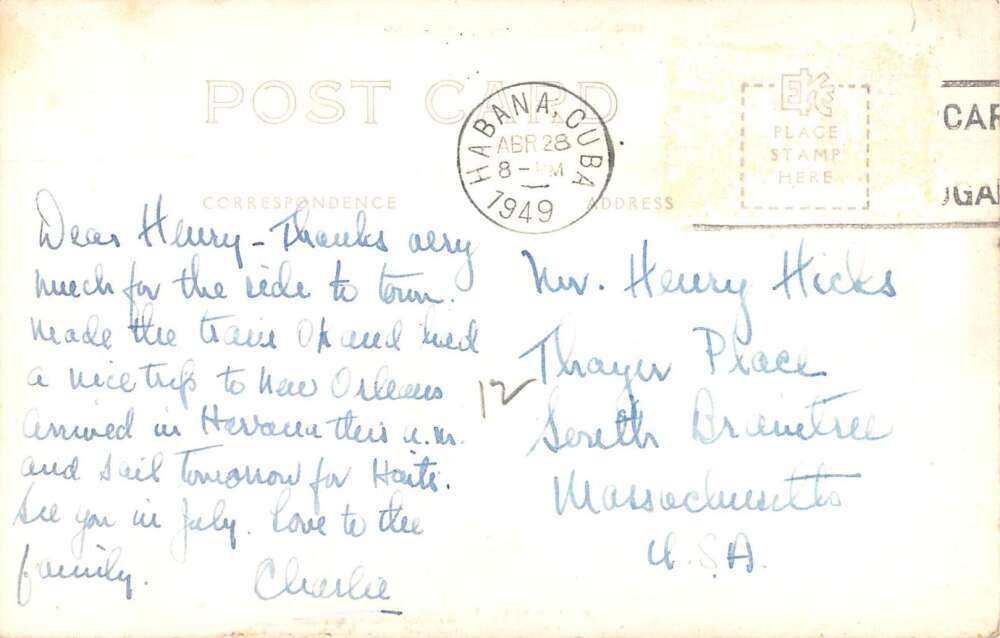 POST CARD
HABANA, CUBA
ABR 28
8-PM
1949
EKC
PLACE
STAMP
HERE
CAR
OGAR
CORRESPONDENCE
ADDRESS
Dear Henry - Thanks very
much for the ride to town.
Made the train OK and had
a nice trip to New Orleans
arrived in Havana this a.m.
and sail tomorrow for Haiti.
See you in July. Love to the
family.
Charlie
12
Mr. Henry Hicks
Thayer Place
South Braintree
Massachusetts
U.S.A.